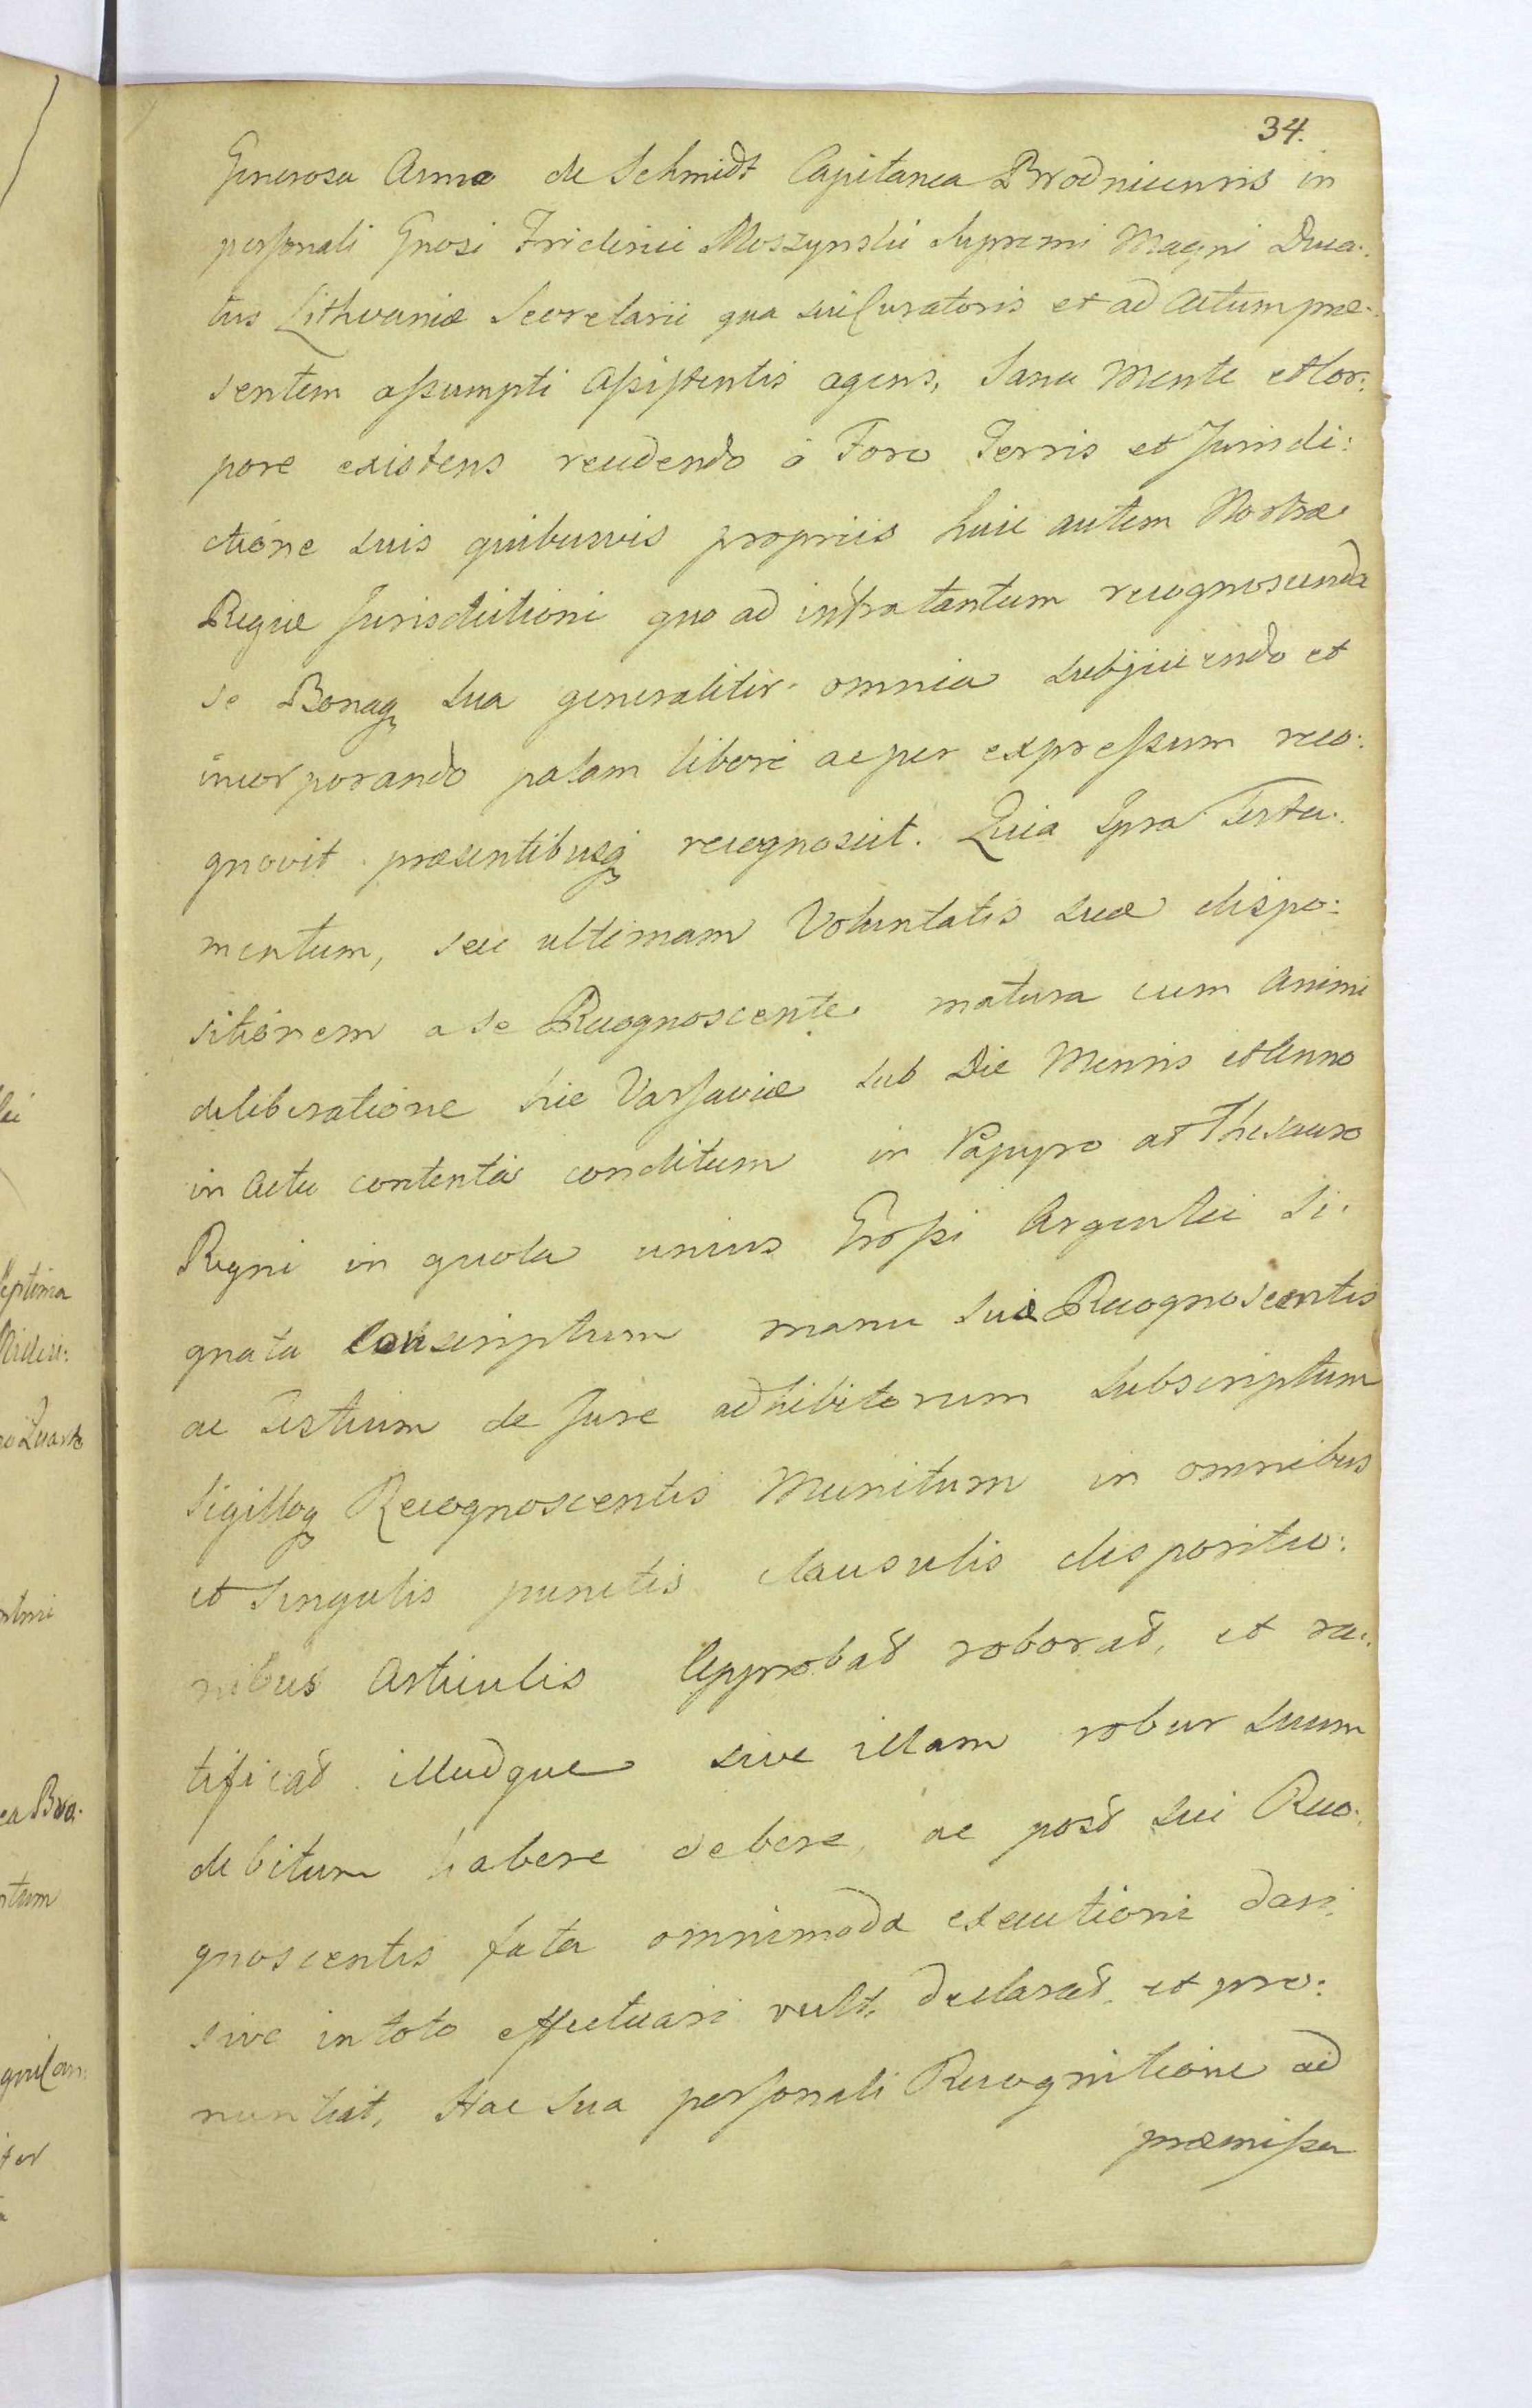 34.
Generosa Anna de Schmidt Capitanea Brodnicensis in
personali Gnosi Friderici Moszynskii Supremi Magni Duca:
tus Lithvaniæ Secretarii qua sui Curatoris et ad Actum præ:
sentem assumpti Assistentis agens, Sana Mente et Cor:
pore existens recedendo à Foro Terris et Jurisdi:
ctione suis quibusvis propriis huic autem Nostræ
Regiæ Jurisdictioni quo ad infra tantum recognoscenda
se Bonaq sua generaliter omnia subjiciendo et
incorporando palam libere ac per expressum reco:
gnovit præsentibusq recognoscit. Quia Ipsa Testa:
mentum, seu ultimam Voluntatis suæ dispo:
sitionem a se Recognoscente matura cum Animi
deliberatione hic Varsaviæ sub Die Mensis et Anno
in Actu contentis conditum in Papyro at Thesauro
Regni in quota unius Grossi Argentei Si:
gnata conscriptum manu suæ Recognoscentis
ac Testium de Jure adhibitorum subscriptum
Sigilloq Recognoscentis Munitum in omnibus
et Singulis punctis clausulis dispositio:
nibus Articulis Approbat roborat, et ra:
tificat illudque sive illam robur suum
debitum habere debere, ac post sui Reco:
gnoscentis fata omnimoda executioni dari,
sive in toto effectuari vult, declarat, et pro:
nuntiat, Hac sua personali Recognitione ad
præmissa